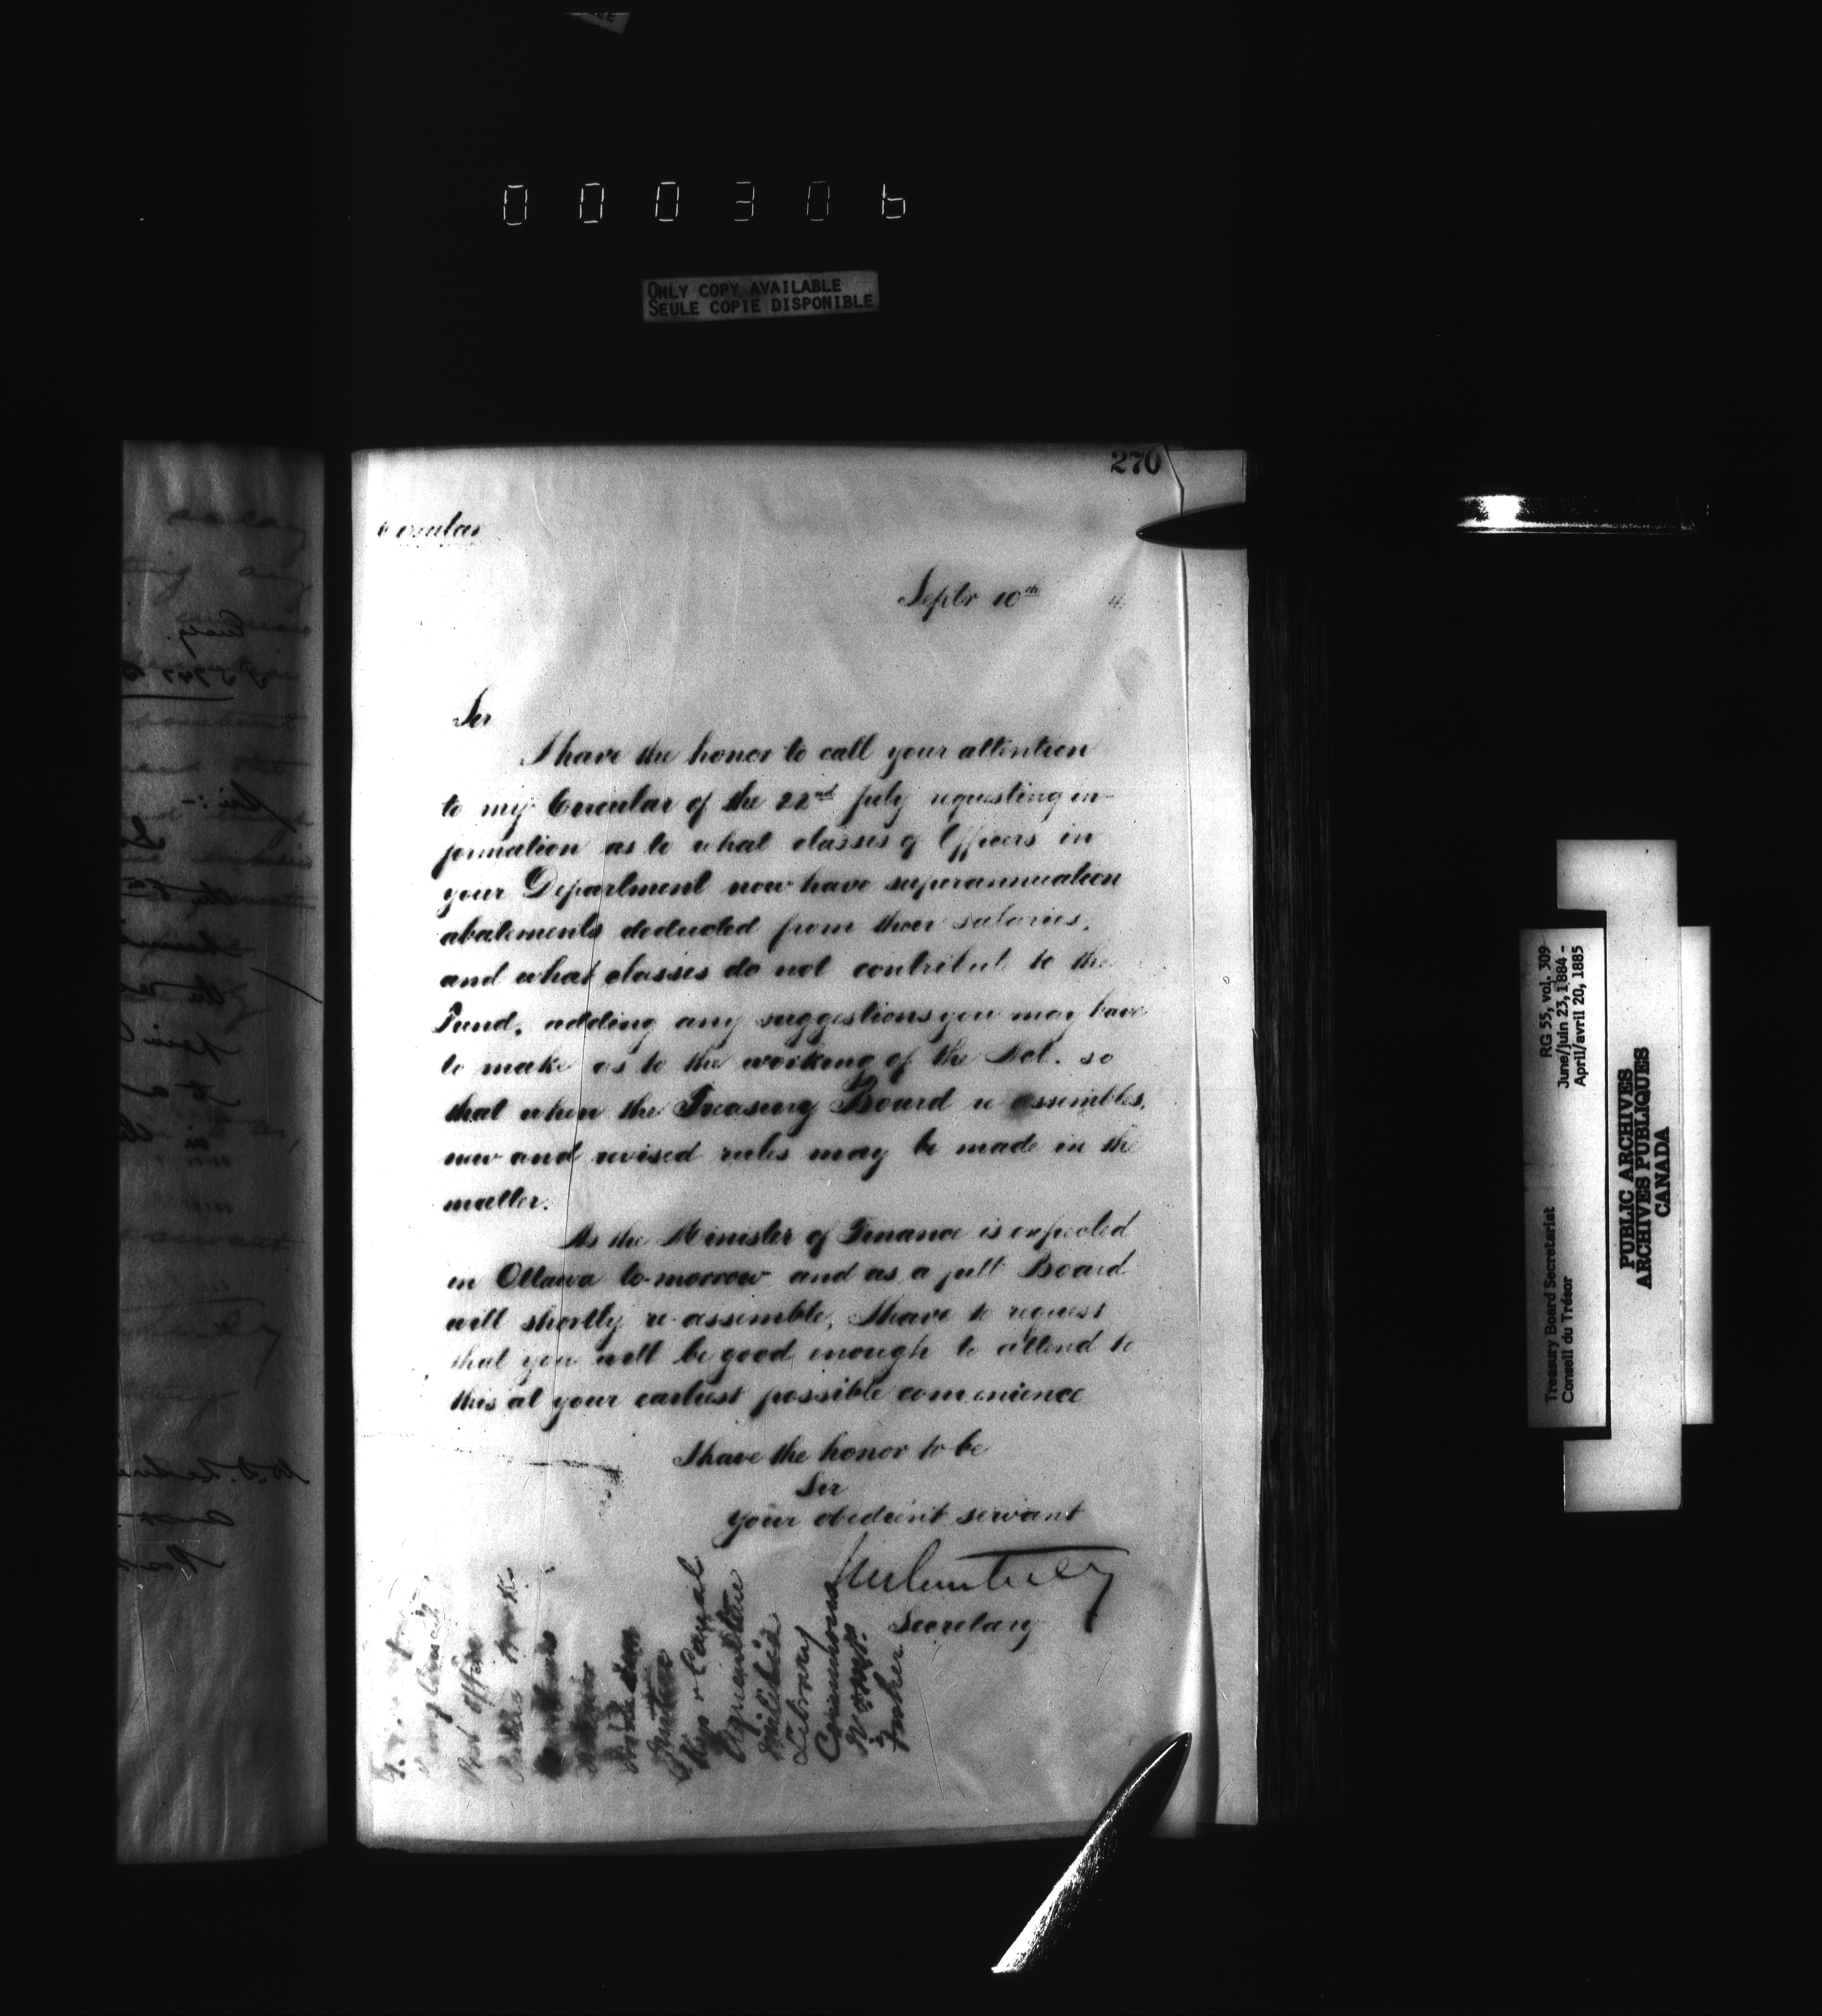 000306
ONLY COPY AVAILABLE
SEULE COPIE DISPONIBLE
270
Circular
Septr 10th 4
Sir
I have the honor to call your attention
to my Circular of the 22nd July requesting in-
formation as to what classes of Officers in
your Department now have superannuation
abatements deducted from their salaries,
and what classes do not contribute to the
Fund, adding any suggestions you may have
to make as to the working of the Act. so
that when the Treasury Board re assembles,
new and revised rules may be made in the
matter.
As the Minister of Finance is expected
in Ottawa to-morrow and as a full Board
will shortly re-assemble, I have to request
that you will be good enough to attend to
this at your earliest possible convenience
I have the honor to be
Sir
Your obedient servant
Secretary
Post Office
Justice
Rys & Canal
Agriculture
Militia
Library
Comm House
Treasury Board Secretariat
Conseil du Trésor
RG 55, vol. 309
June/juin 23, 1884 -
April/avril 20, 1885
PUBLIC ARCHIVES
ARCHIVES PUBLIQUES
CANADA